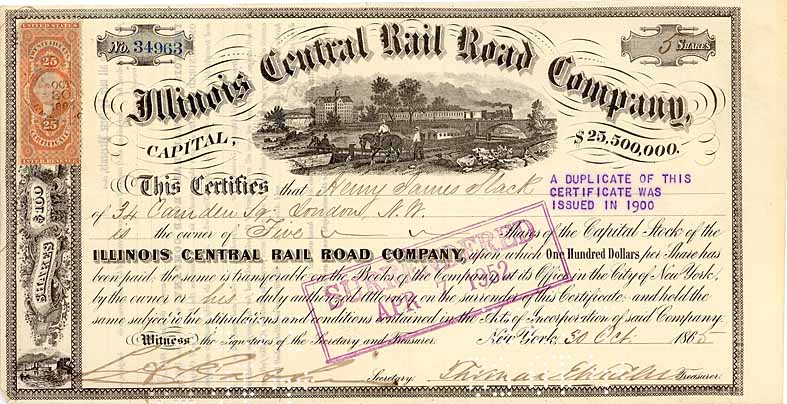 No. 34963
5 SHARES
UNITED STATES
25
25
CERTIFICATE
INTER. REVENUE
Illinois Central Rail Road Company,
CAPITAL,
$25,500,000.
This Certifies that Henry James Slack
A DUPLICATE OF THIS
CERTIFICATE WAS
ISSUED IN 1900
of 34 Camden Sq. London, N.W.
is the owner of Five Shares of the Capital Stock of the
ILLINOIS CENTRAL RAIL ROAD COMPANY, upon which One Hundred Dollars per Share has
been paid. the same is transferable on the Books of the Company at its Office in the City of New York,
by the owner or his duly authorized Attorney on the surrender of this Certificate, and held the
same subject to the stipulations and conditions contained in the Acts of Incorporation of said Company.
SURRENDERED
APR 7 1952
Witness the Signatures of the Secretary and Treasurer.
New York, 30 Oct. 1865
Secretary.
Treasurer.
$100
SHARES